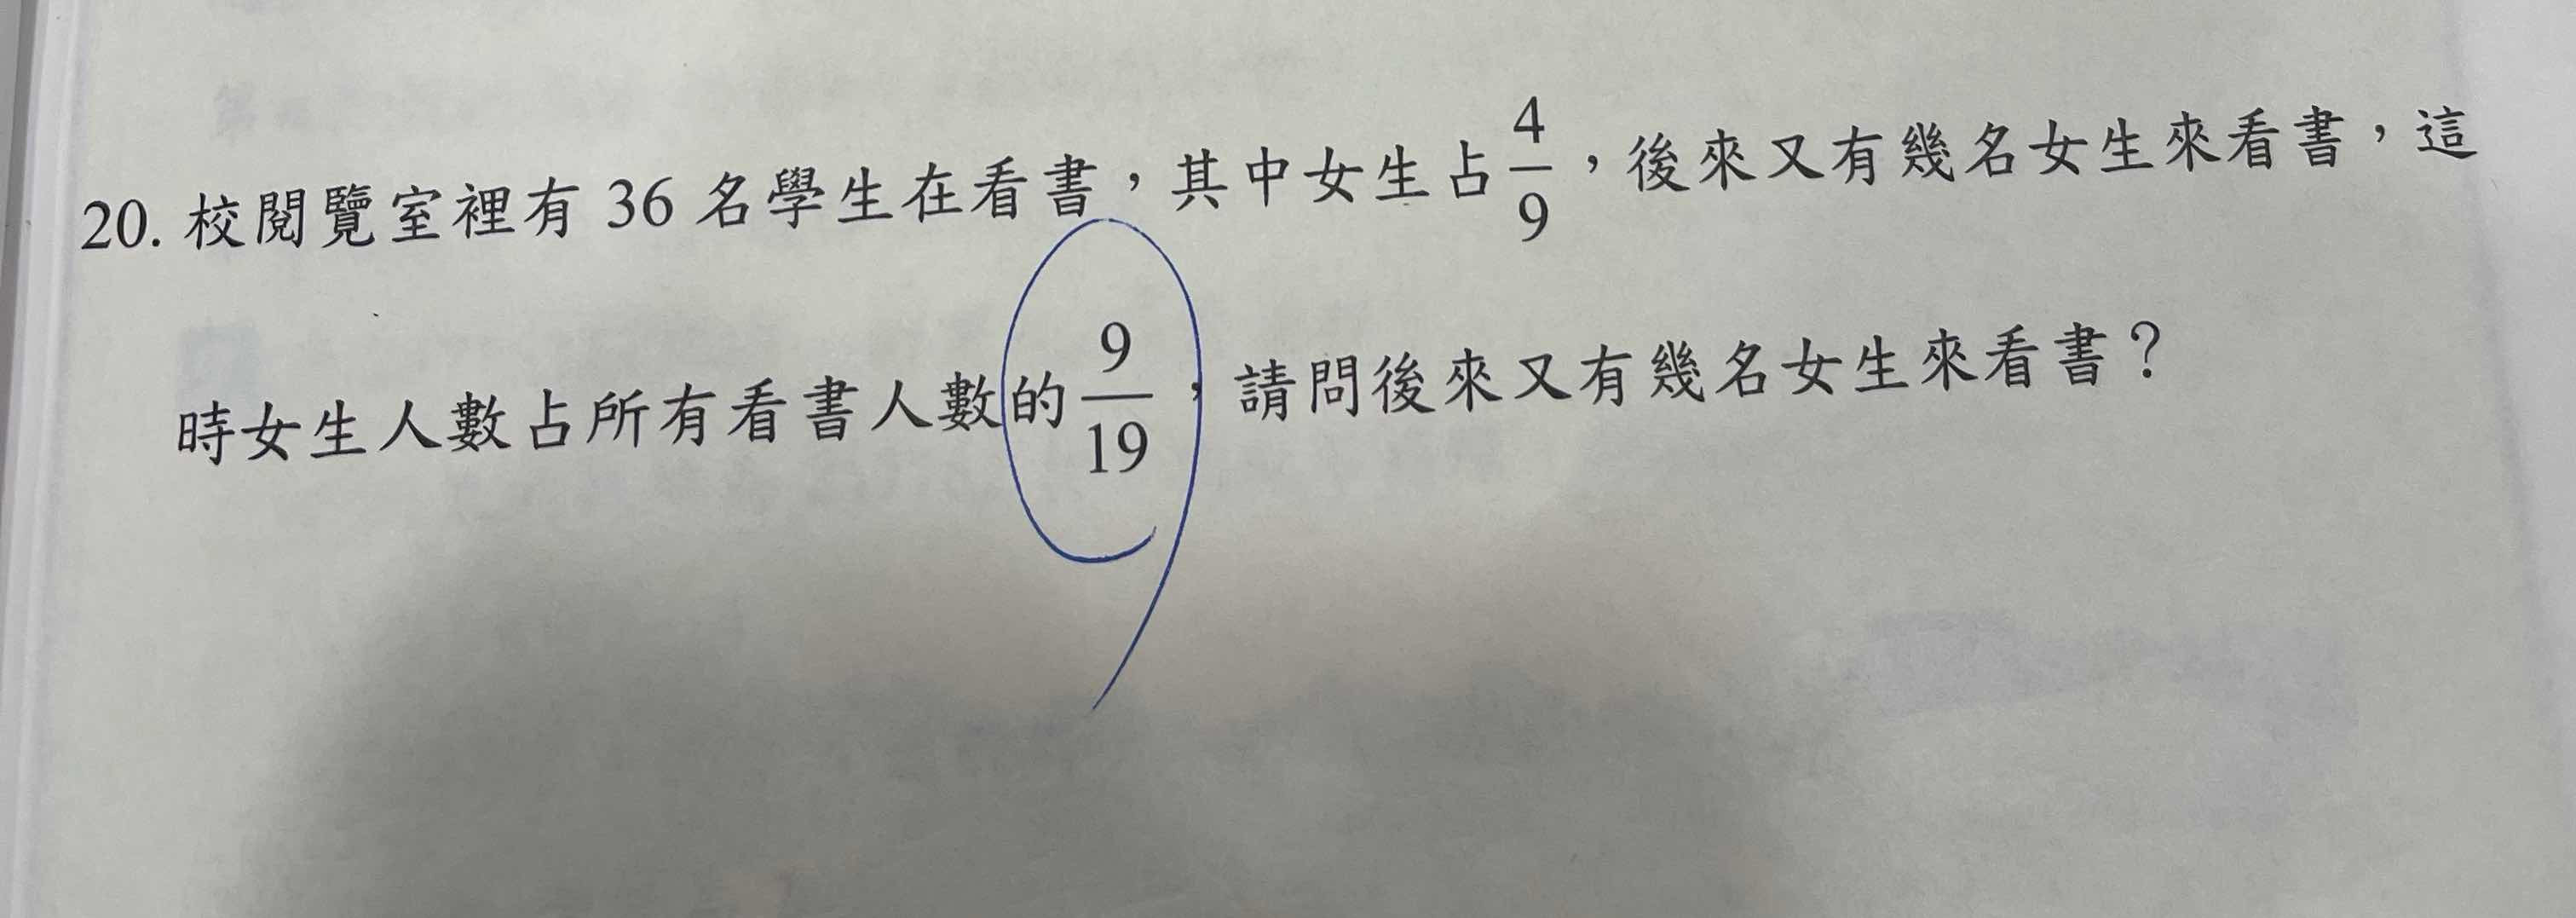 20. 校閱覽室裡有 36 名學生在看書，其中女生占 4/9，後來又有幾名女生來看書，這
時女生人數占所有看書人數的 9/19，請問後來又有幾名女生來看書？